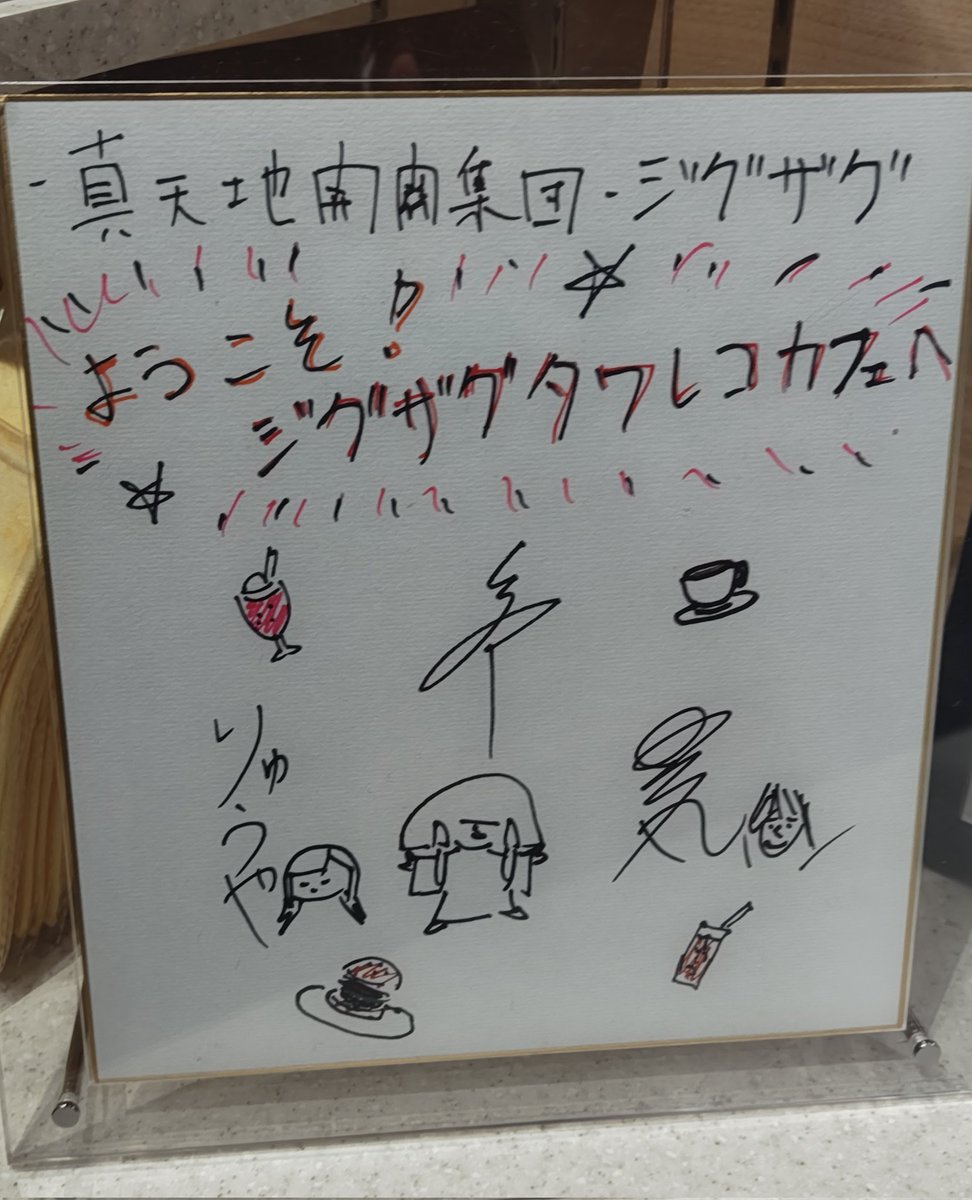 -真天地開闢集団-ジグザグ
ようこそ!
ジグザグタワレコカフェへ
りゅうや